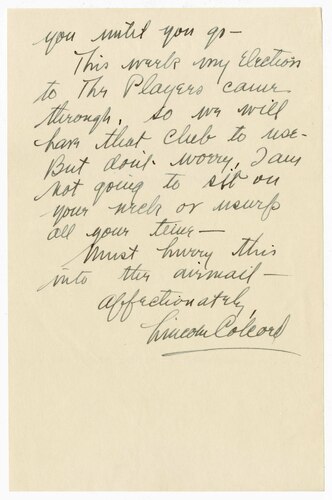 you until you go—
This week my Election
to The Players came
through, so we will
have that club to use.
But don't worry, I am
not going to sit on
your neck or usurp
all your time—
Must hurry this
into the airmail—
affectionately,
Lincoln Colcord